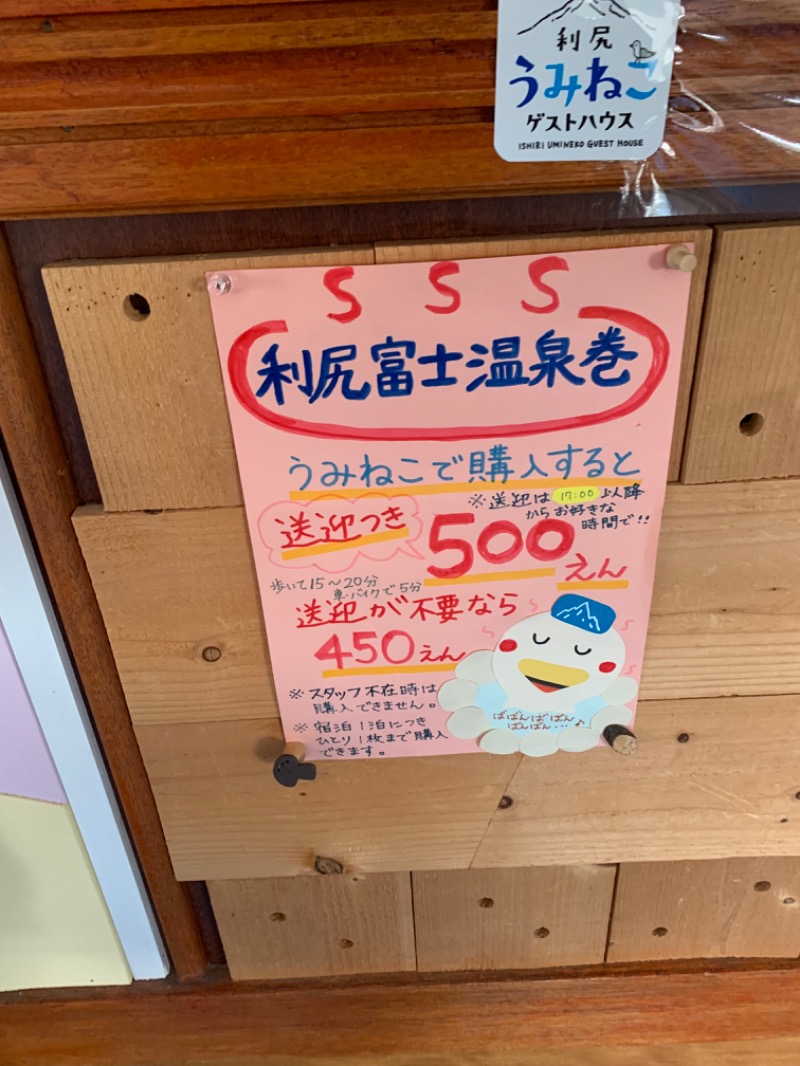 利尻
うみねこ
ゲストハウス
ISHIRI UMINEKO GUEST HOUSE
S S S
利尻富士温泉巻
うみねこで購入すると
※送迎は17:00以降
からお好きな
時間で!!
送迎つき
500えん
歩いて15〜20分
車・バイクで5分
送迎が不要なら
450えん
※スタッフ不在時は
購入できません。
※宿泊1泊につき
ひとり1枚まで購入
できます。
ばばんばばん
ばんばん...♪